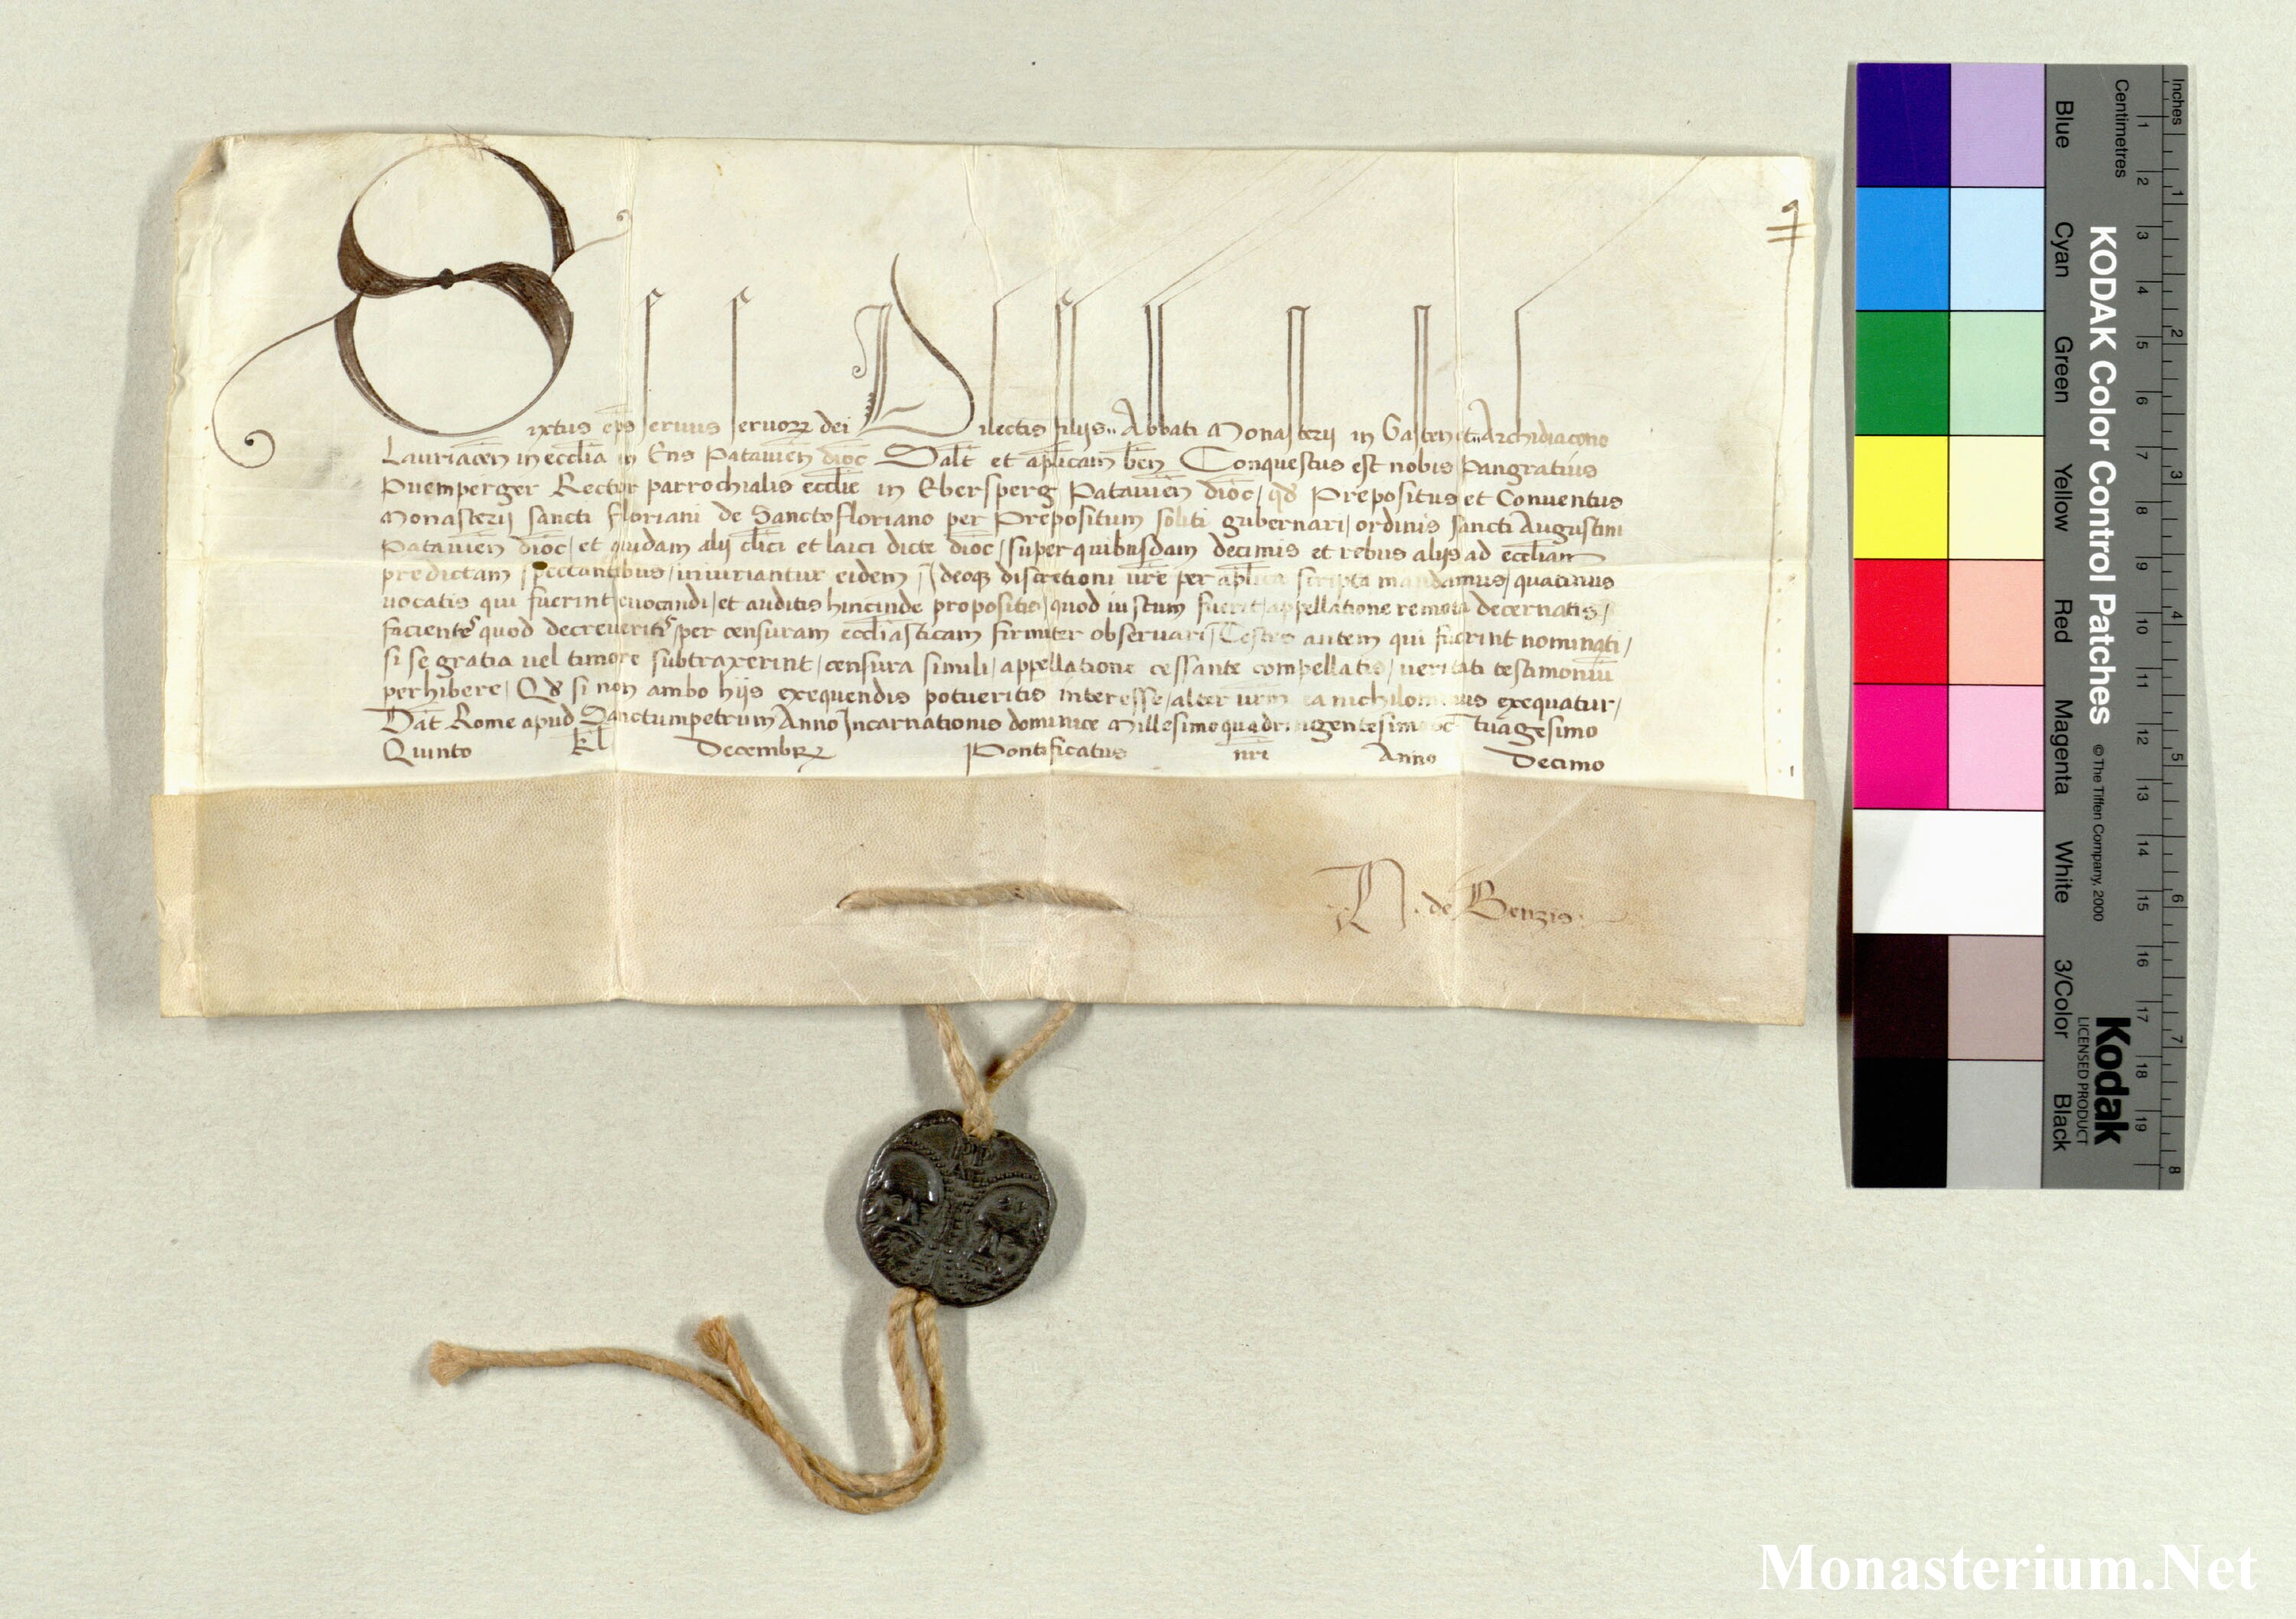 Sixtus ep̄s seruus seruoꝝ dei Dilectis filijs ·· Abbati Monasterij in Garsten et ·· Archidiacono
Lauriaceñ in eccl̄ia in Ens Patauieñ dioc̄ Sal̄t et ap̄licam ben̄ Conquestus est nobis Pangratius
Puemperger Rector parrochialis eccl̄ie in Ebersperg Patauieñ dioc̄ / qđ Prepositus et Conuentus
Monasterij sancti floriani de Sanctofloriano per Prepositum soliti gubernari / ordinis sancti Augustini
Patauieñ dioc̄ / et quidam alij cl̄ici et laici dicte dioc̄ / super quibusdam decimis et rebus alijs ad eccl̄iam
predictam spectantibus / iniuriantur eidem / Ideoqꝫ discretioni ur̄e per ap̄lica scripta mandamus / quatinus
uocatis qui fuerint euocandi / et auditis hincinde propositis / quod iustum fuerit / appellatione remota decernatis /
facientes quod decreueritis per censuram eccl̄iasticam firmiter obseruari / Testes autem qui fuerint nominati /
si se gratia uel timore subtraxerint / censura simili / appellatione cessante compellatis / ueritati testimoniū
perhibere / Qđ si non ambo hijs exequendis potueritis interesse / alter ur̄m ea nichilominus exequatur /
Dat̄ Rome apud Sanctumpetrum Anno Incarnationis dominice Millesimoquadringentesimooctuagesimo
Quinto kl̄ Decembrꝝ Pontificatus nr̄i Anno Decimo
N. de Benzis.
Inches
Centimetres
1 2 3 4 5 6 7 8 9 10 11 12 13 14 15 16 17 18 19
1 2 3 4 5 6 7 8
KODAK Color Control Patches © The Tiffen Company, 2000
Kodak
LICENSED PRODUCT
Blue Cyan Green Yellow Red Magenta White 3/Color Black
Monasterium.Net